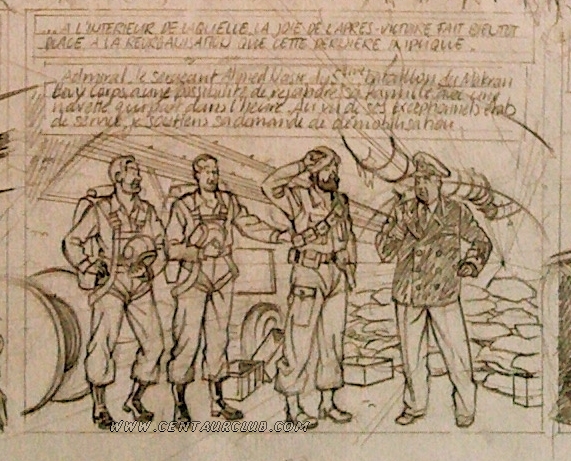 ... A L'INTERIEUR DE LAQUELLE LA JOIE DE L'APRES-VICTOIRE FAIT BIENTOT
PLACE A LA REORGANISATION QUE CETTE DERNIERE IMPLIQUE.
Admiral, le sergeant Ahmed Nasir, du 5ème bataillon du Makran
Levy Corps, a une possibilité de rejoindre sa famille avec une
navette qui part dans l'heure. Au vu de ses exceptionnels états
de service, je soutiens sa demande de démobilisation.
WWW.CENTAURCLUB.COM